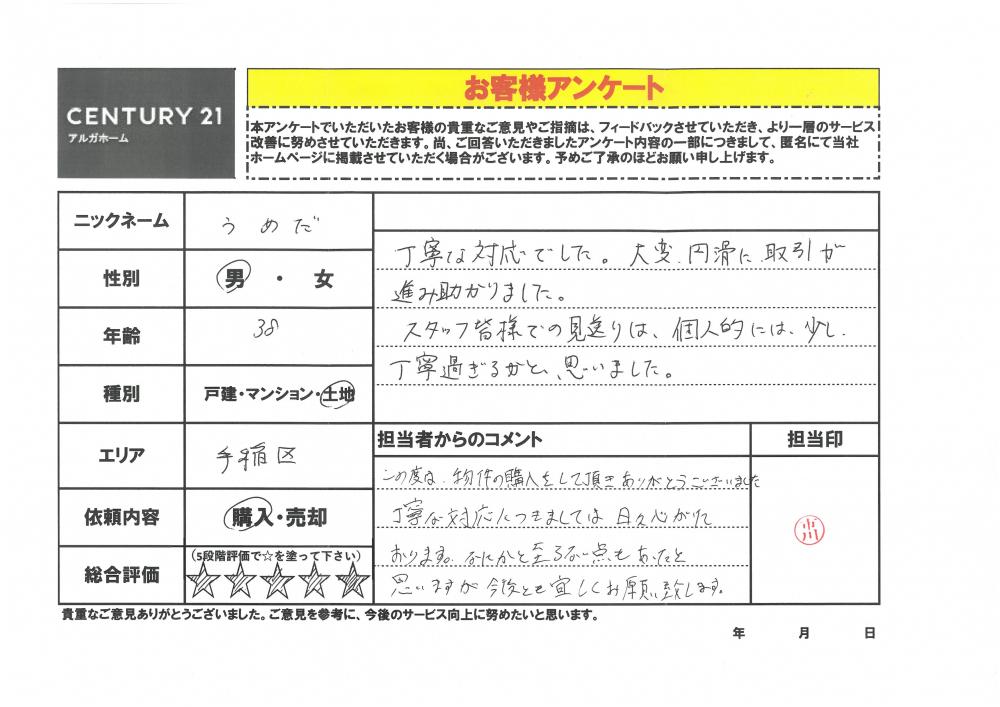 CENTURY 21
アルガホーム
お客様アンケート
本アンケートでいただいたお客様の貴重なご意見やご指摘は、フィードバックさせていただき、より一層のサービス
改善に努めさせていただきます。尚、ご回答いただきましたアンケート内容の一部につきまして、匿名にて当社
ホームページに掲載させていただく場合がございます。予めご了承のほどお願い申し上げます。
ニックネーム
うめだ
性別
男・女
年齢
38
種別
戸建・マンション・土地
エリア
手稲区
依頼内容
購入・売却
総合評価
(5段階評価で☆を塗って下さい)
☆☆☆☆☆
丁寧な対応でした。大変、円滑に取引が
進み助かりました。
スタッフ皆様での見送りは、個人的には、少し
丁寧過ぎるかと、思いました。
担当者からのコメント
この度は、物件の購入をして頂きありがとうございました
丁寧な対応につきましては日々心がけて
おります。なにかと至らない点もあったと
思いますが今後とも宜しくお願い致します。
担当印
貴重なご意見ありがとうございました。ご意見を参考に、今後のサービス向上に努めたいと思います。
年 月 日